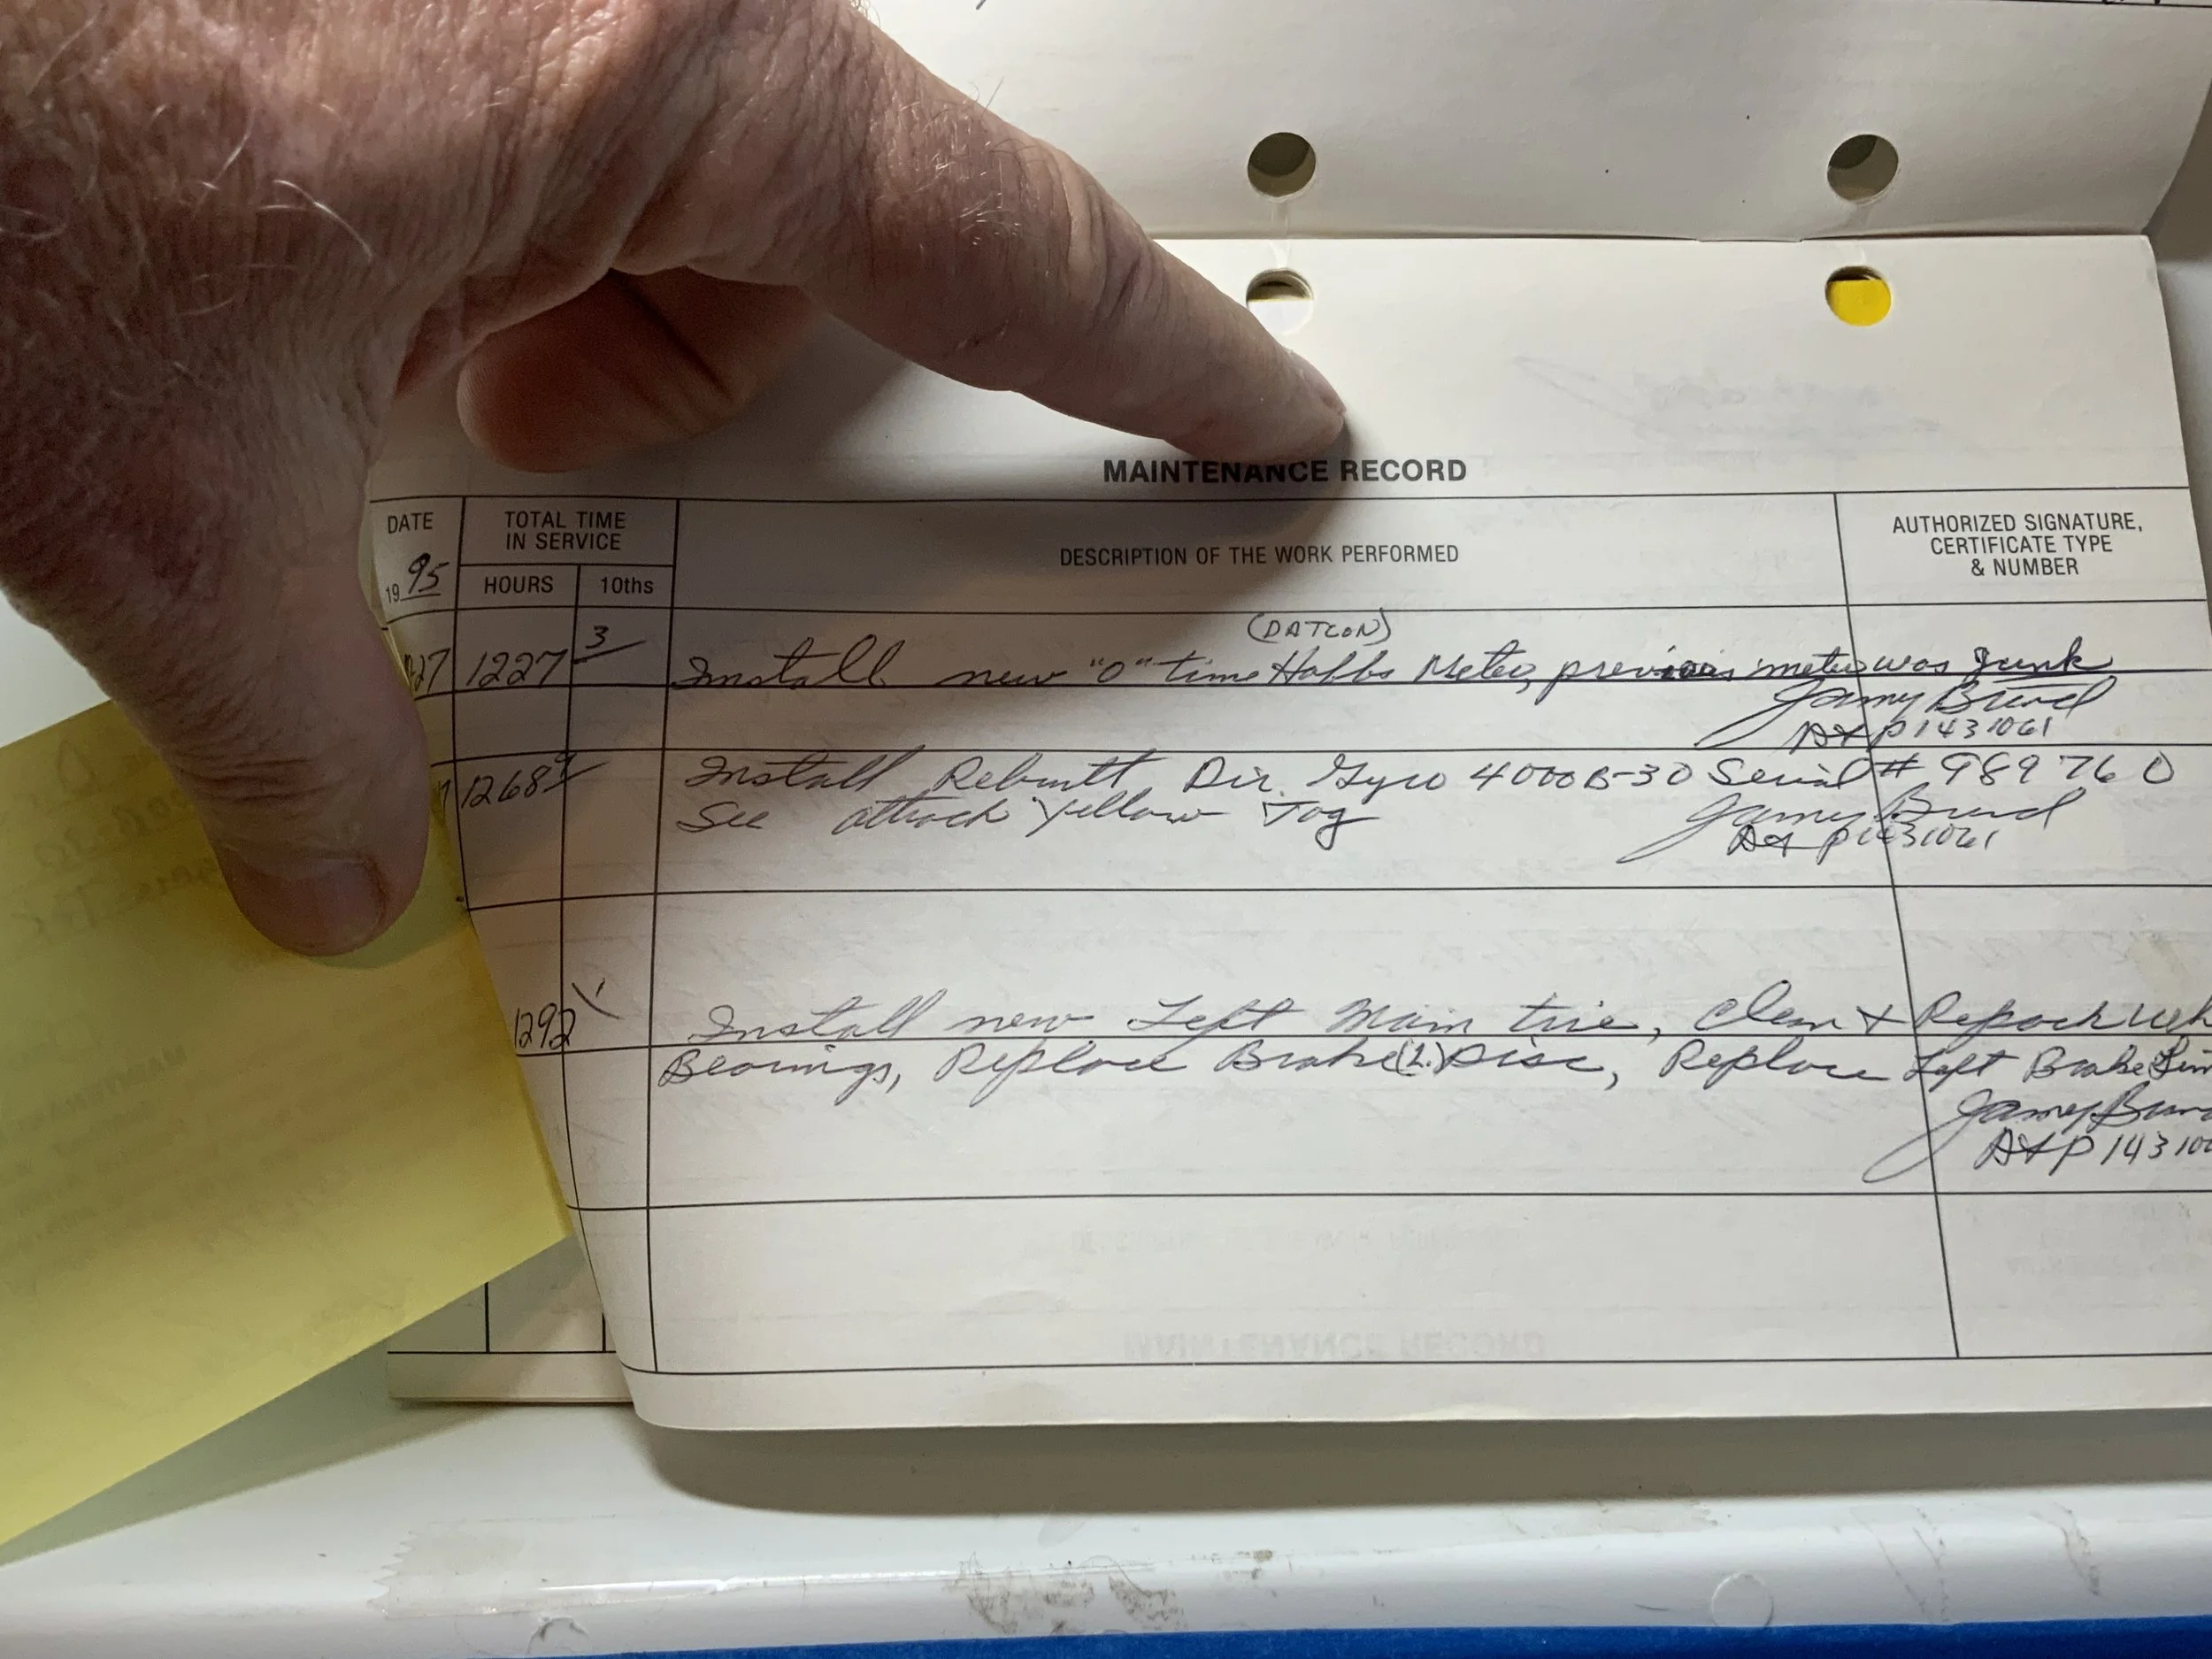 MAINTENANCE RECORD
DATE
19 95
TOTAL TIME
IN SERVICE
HOURS 10ths
DESCRIPTION OF THE WORK PERFORMED
AUTHORIZED SIGNATURE,
CERTIFICATE TYPE
& NUMBER
(DATCON)
27 1227 3 Install new "0" time Hobbs Meter, previous meter was Junk
A&P 1431061
1268 Install Rebuilt Dir. Gyro 4000B-30 Serial # 989760
See attach Yellow Tag
A&P 1431061
1292 1 Install new Left Main tire, Clean & Repack
Bearings, Replace Brake (L.) Disc, Replace Left Brake
A&P 1431